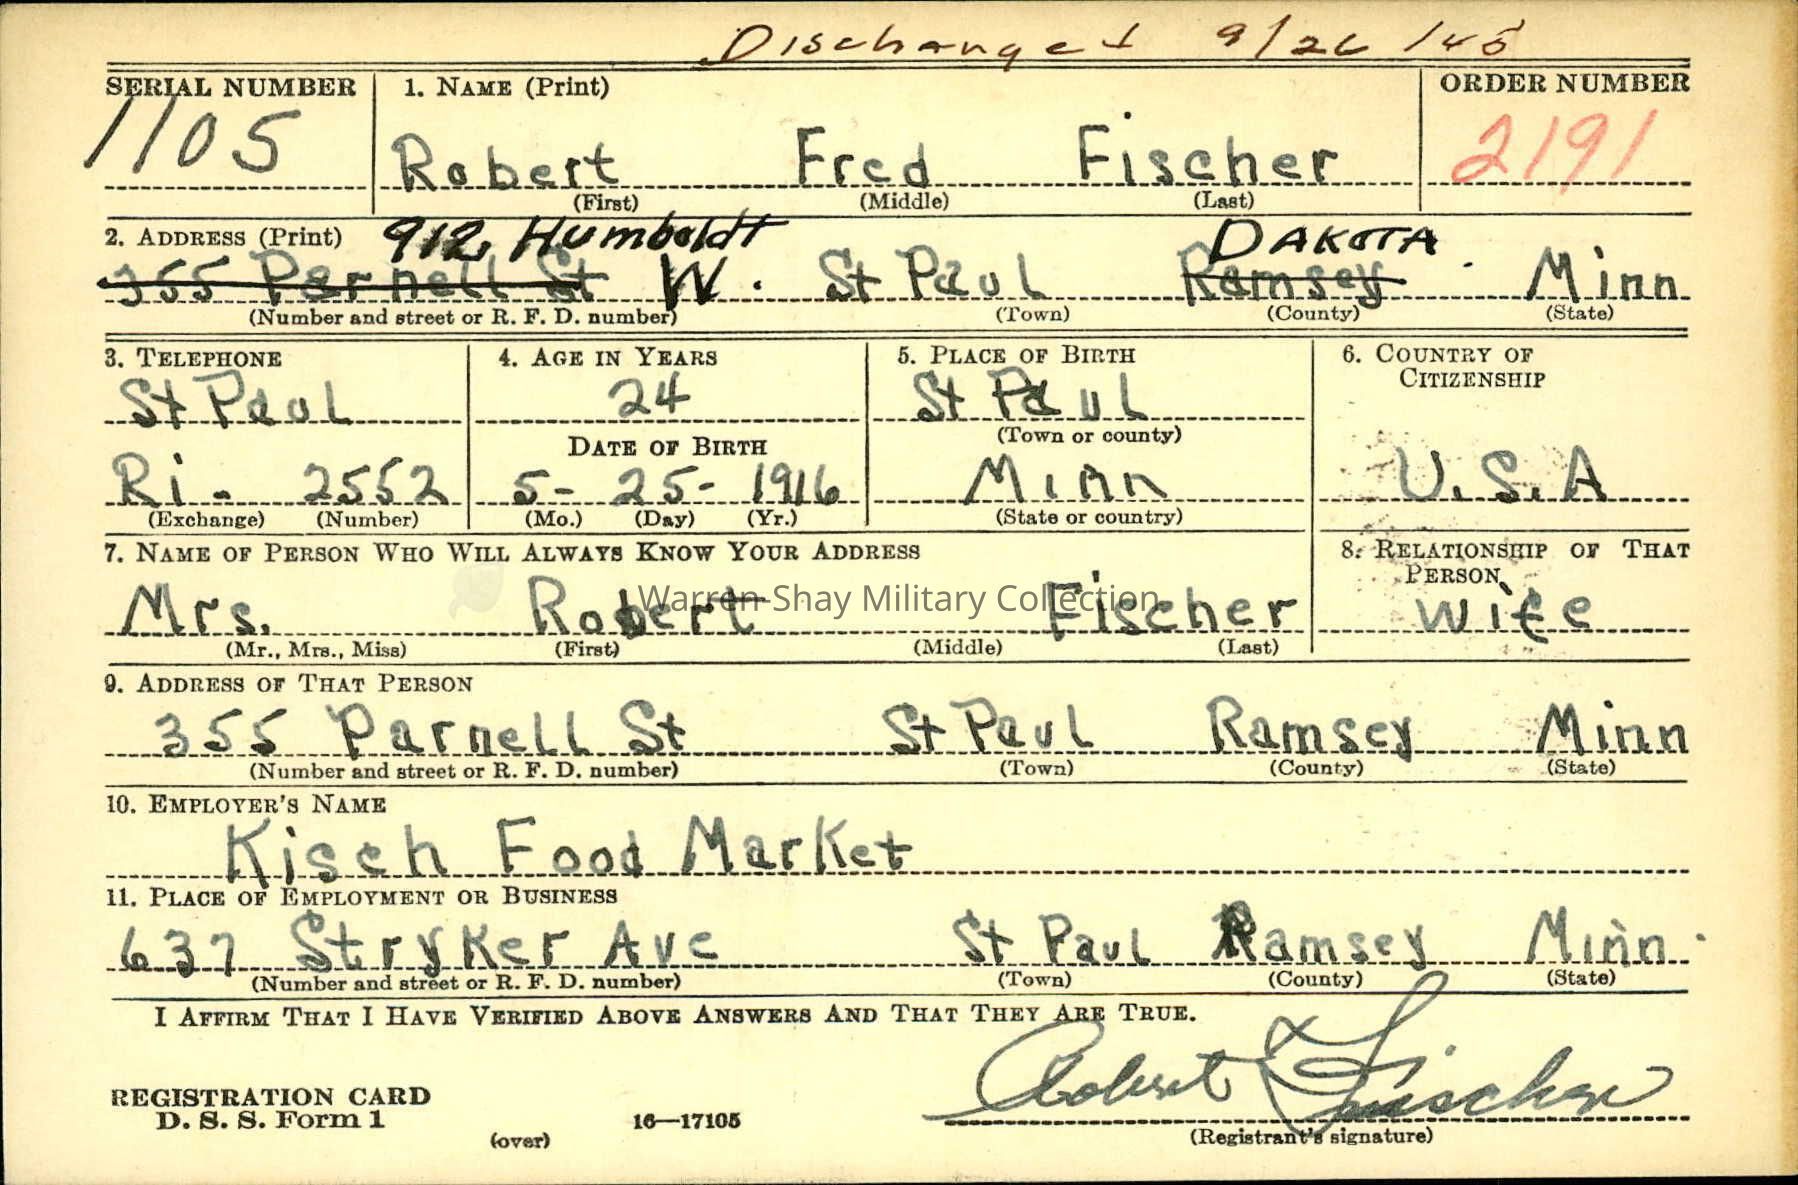 Discharged 9/26/45
SERIAL NUMBER 1. NAME (Print) ORDER NUMBER
1105 Robert Fred Fischer 2191
(First) (Middle) (Last)
2. ADDRESS (Print) 912 Humboldt DAKOTA
355 Parnell St W. St Paul Ramsey Minn
(Number and street or R. F. D. number) (Town) (County) (State)
3. TELEPHONE 4. AGE IN YEARS 5. PLACE OF BIRTH 6. COUNTRY OF
CITIZENSHIP
St Paul 24 St Paul
(Town or county)
DATE OF BIRTH
Ri - 2552 5- 25- 1916 Minn U.S.A
(Exchange) (Number) (Mo.) (Day) (Yr.) (State or country)
7. NAME OF PERSON WHO WILL ALWAYS KNOW YOUR ADDRESS 8. RELATIONSHIP OF THAT
PERSON
Warren Shay Military Collection
Mrs. Robert Fischer wife
(Mr., Mrs., Miss) (First) (Middle) (Last)
9. ADDRESS OF THAT PERSON
355 Parnell St St Paul Ramsey Minn
(Number and street or R. F. D. number) (Town) (County) (State)
10. EMPLOYER'S NAME
Kisch Food Market
11. PLACE OF EMPLOYMENT OR BUSINESS
637 Stryker Ave St Paul Ramsey Minn.
(Number and street or R. F. D. number) (Town) (County) (State)
I AFFIRM THAT I HAVE VERIFIED ABOVE ANSWERS AND THAT THEY ARE TRUE.
Robert Fischer
REGISTRATION CARD
D. S. S. Form 1 16—17105
(over) (Registrant's signature)